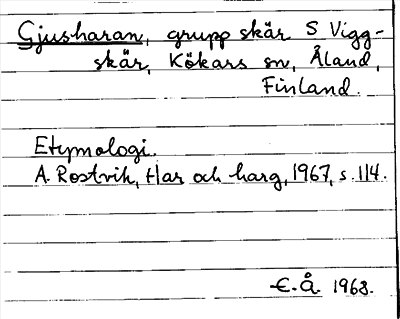 Gjusharan, grupp skär S Vigg-
skär, Kökars sn, Åland,
Finland.
Etymologi.
A. Rostvik, Har och harg, 1967, s. 114.
E.Å. 1968.